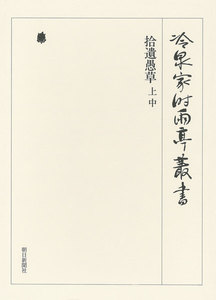 冷泉家時雨亭叢書
拾遺愚草 上中
朝日新聞社